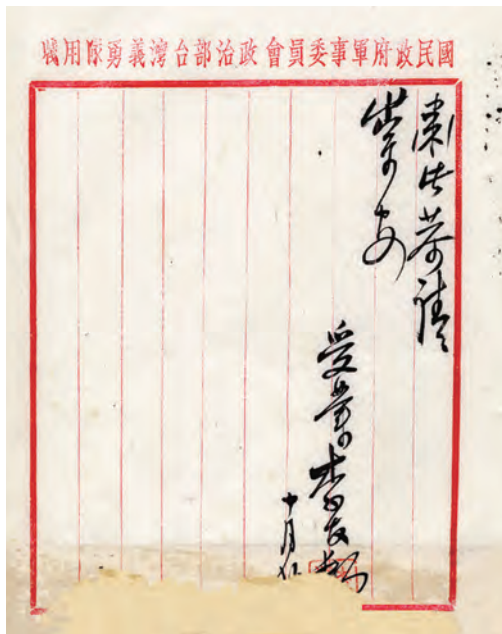 國民政府軍事委員會政治部台灣義勇隊用牋
肅此恭請
崇安
受業李友邦
十月